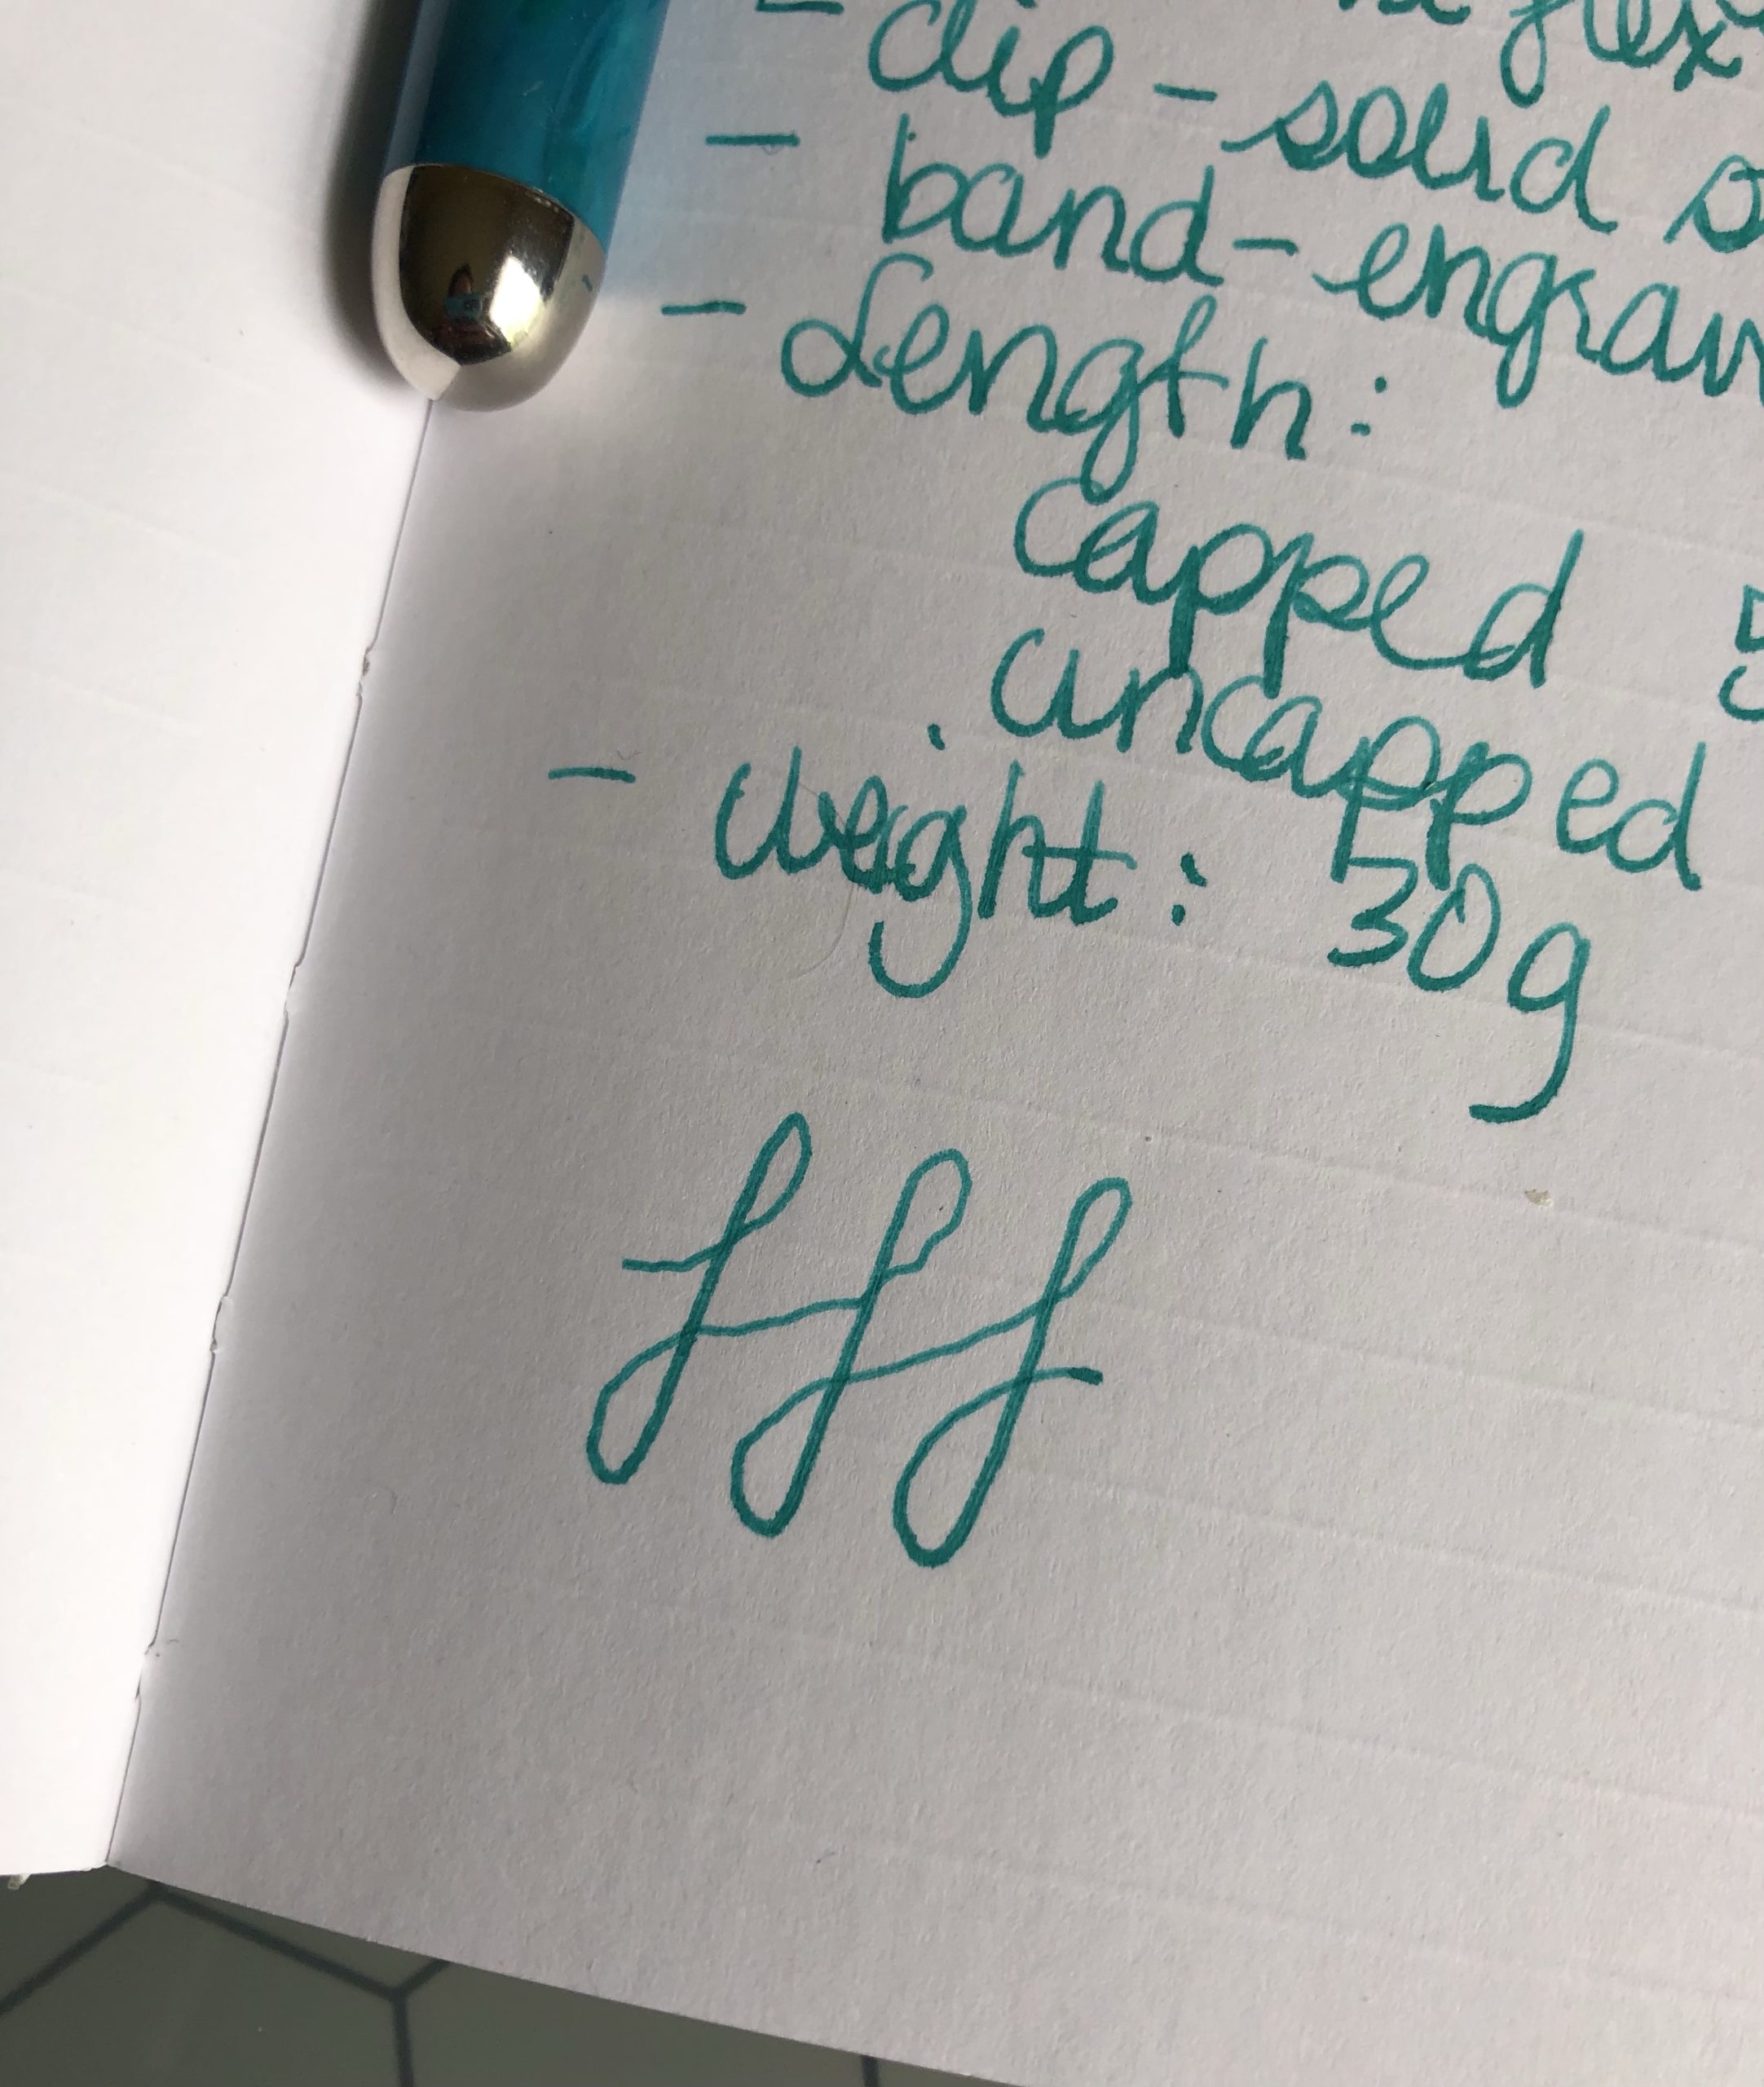 - flex
- clip - solid
- band - engrav
- Length:
capped 5
uncapped
- Weight: 30g
fff